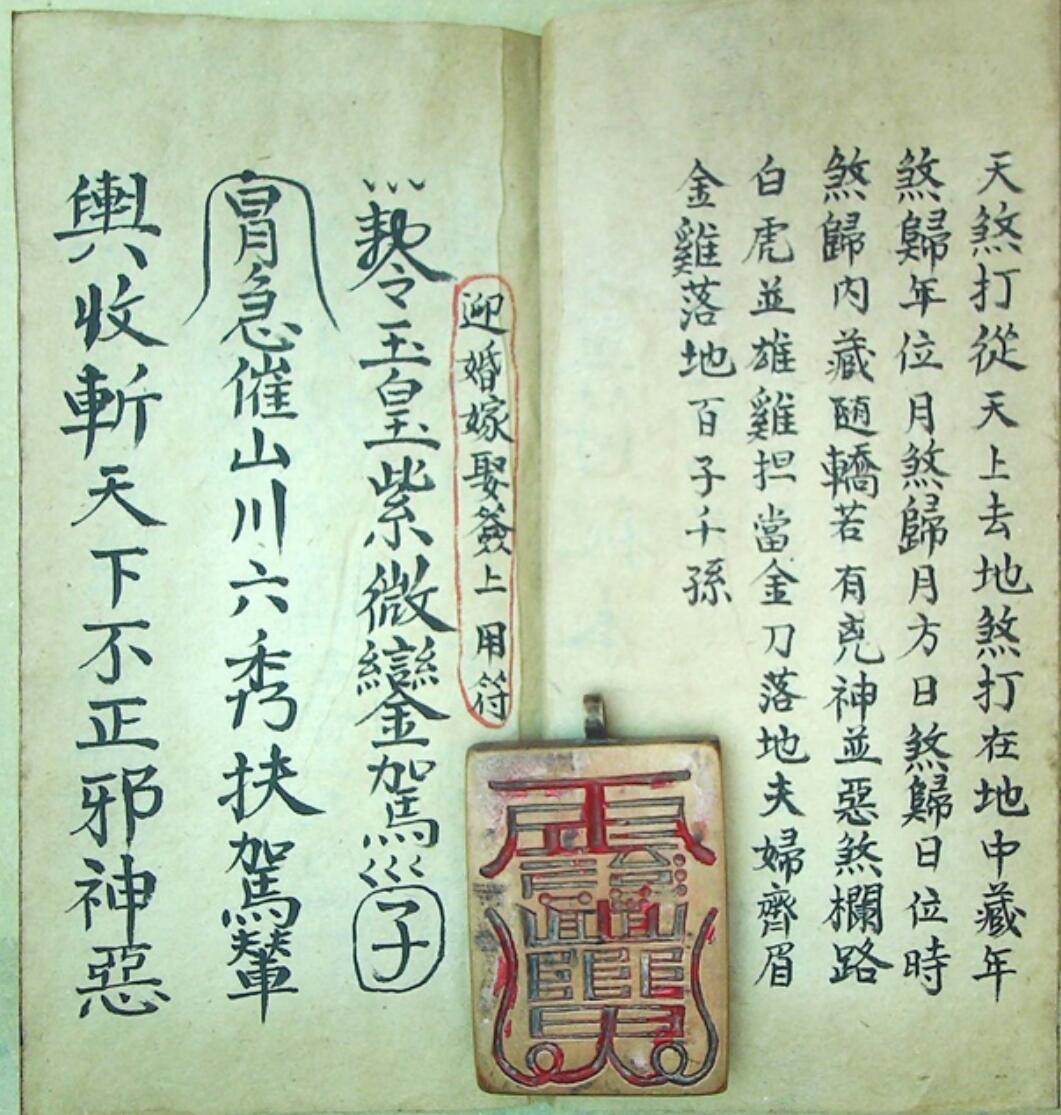 天煞打從天上去地煞打在地中藏年
煞歸年位月煞歸月方日煞歸日位時
煞歸內藏随轎若有兇神並惡煞欄路
白虎並雄雞担當金刀落地夫婦齊眉
金雞落地百子千孫
迎婚嫁娶簽上用符
勅令玉皇紫微鑾駕子
急催山川六秀扶駕輦
輿收斬天下不正邪神惡